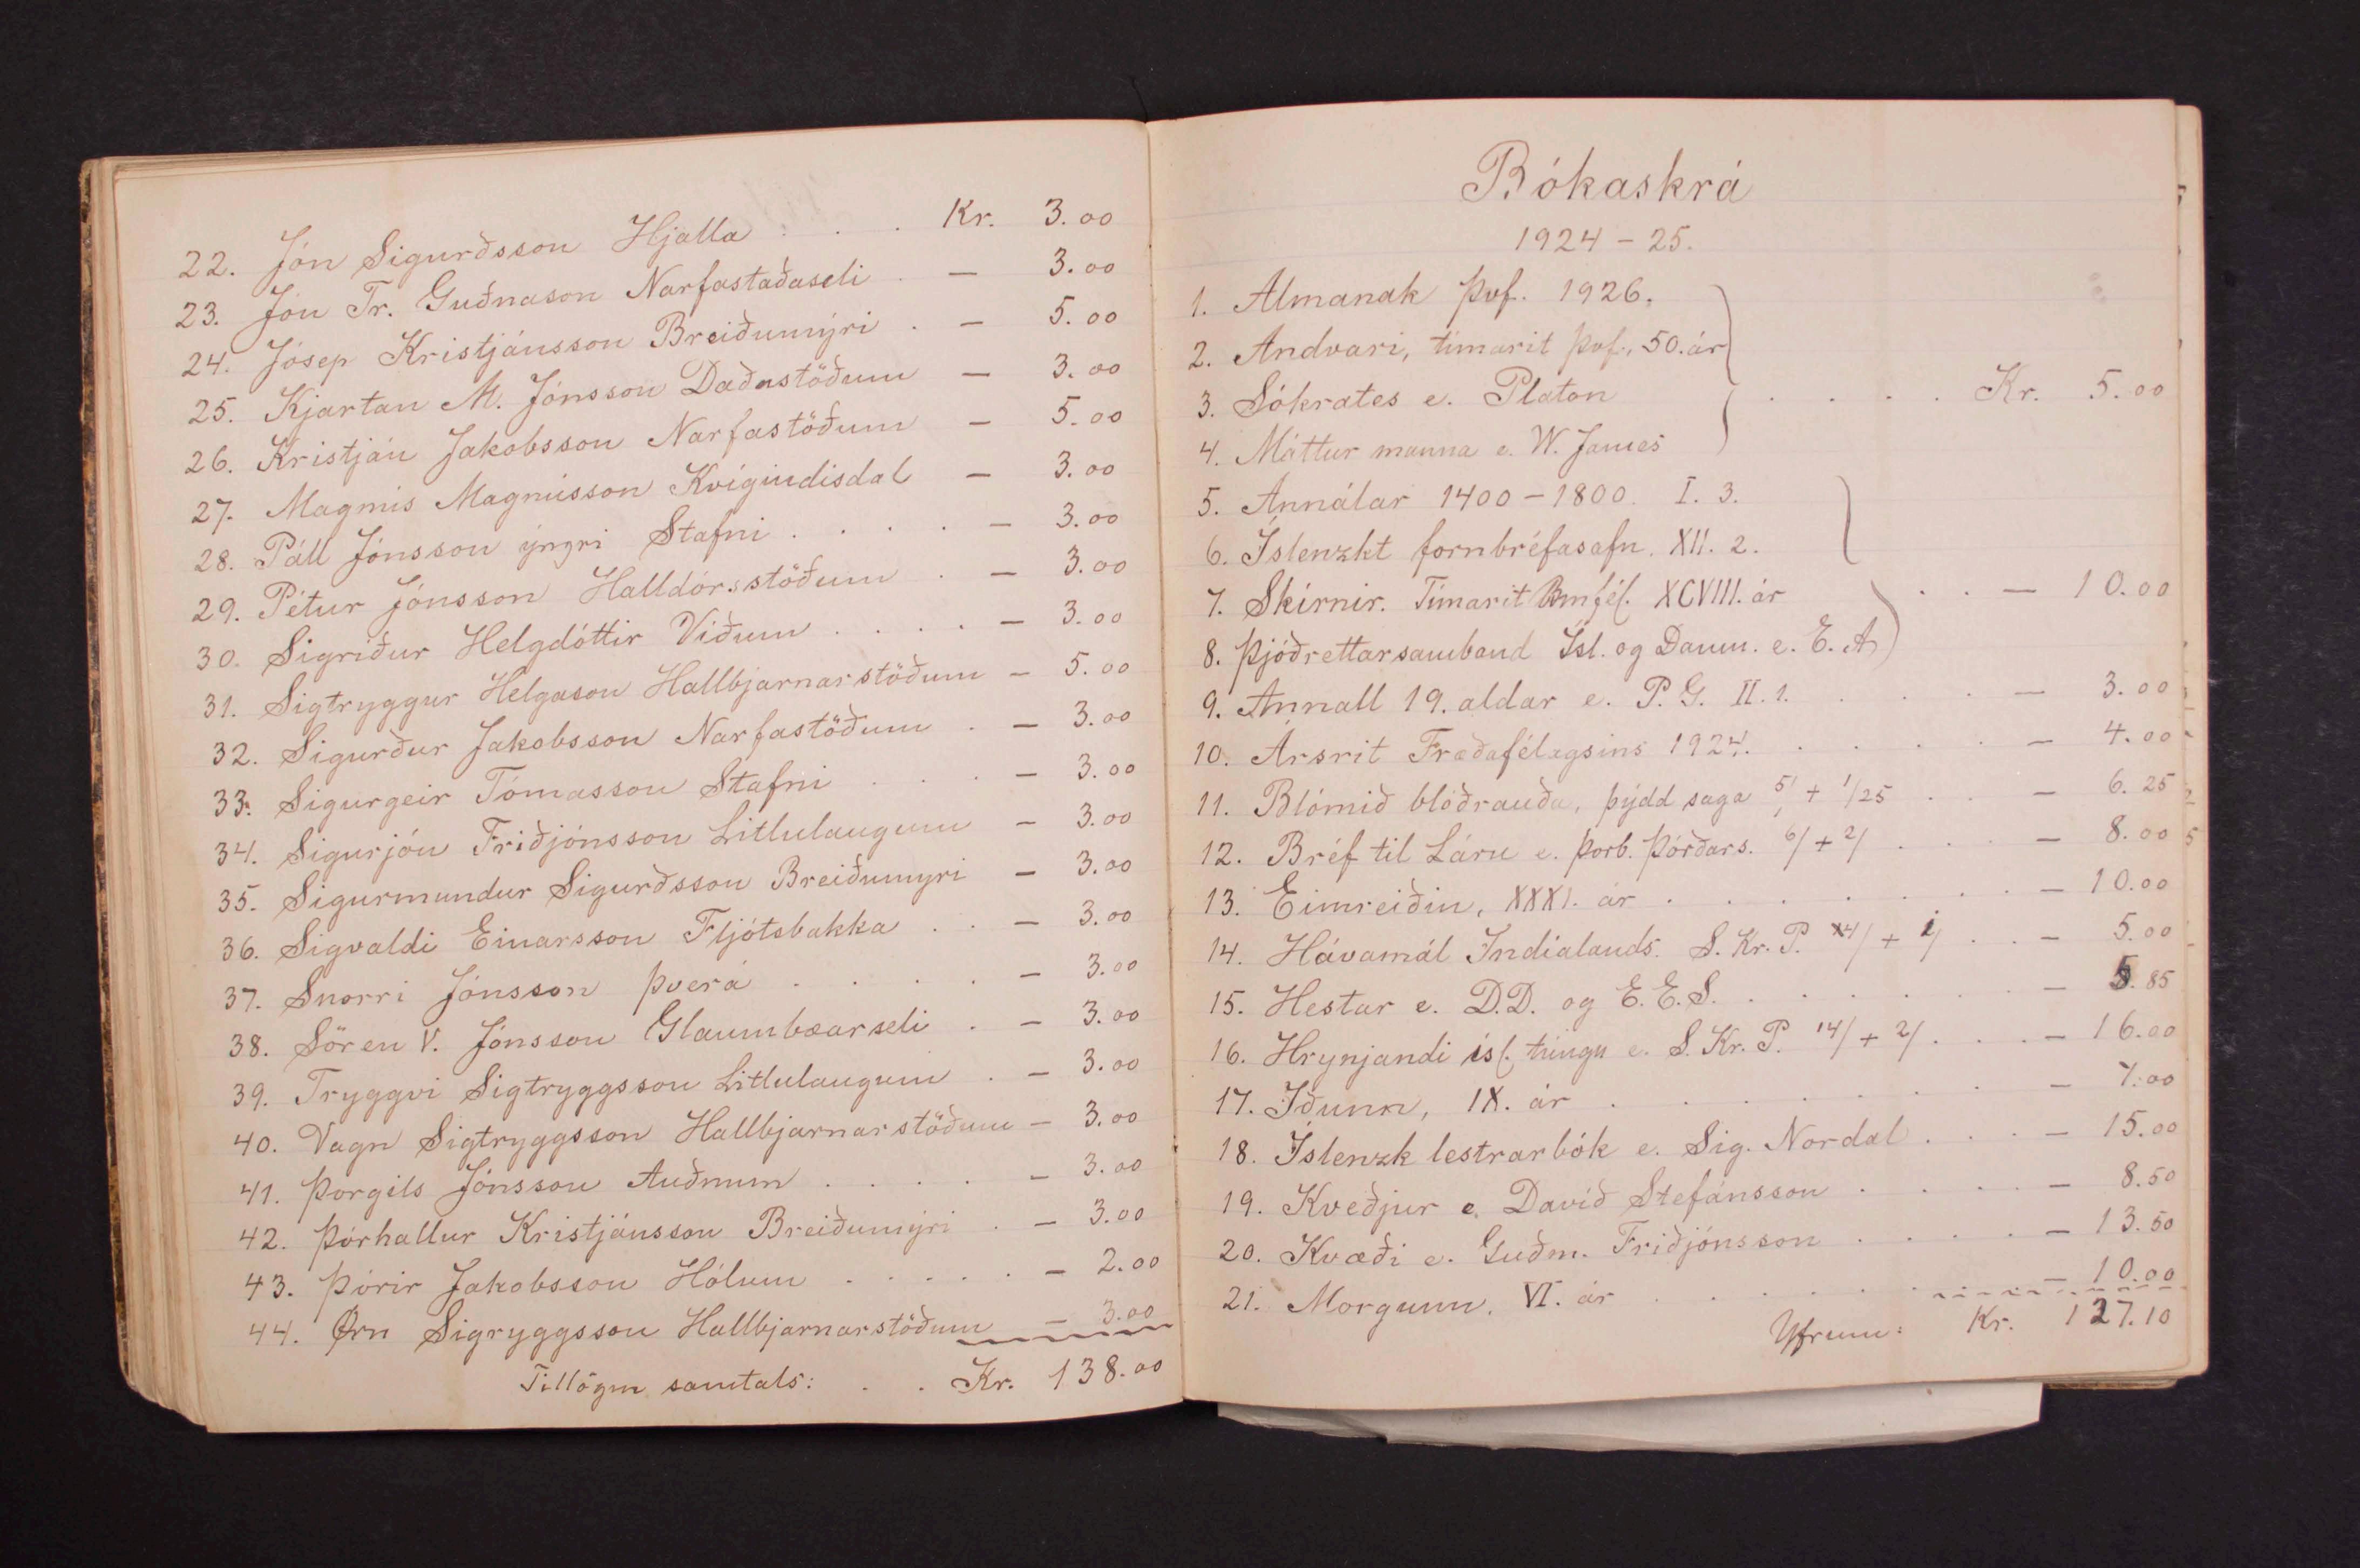 22. Jón Sigurðsson Hjalla . . . Kr. 3.00
23. Jón Tr. Guðnason Narfastaðaseli . — 3.00
24. Jósep Kristjánsson Breiðumýri . — 5.00
25. Kjartan M. Jónsson Daðastöðum — 3.00
26. Kristján Jakobsson Narfastöðum — 5.00
27. Magnús Magnússon Kvígindisdal — 3.00
28. Páll Jónsson yngri Stafni . . . . — 3.00
29. Pétur Jónsson Halldórsstöðum . — 3.00
30. Sigríður Helgdóttir Víðum . . . . — 3.00
31. Sigtryggur Helgason Hallbjarnarstöðum — 5.00
32. Sigurður Jakobsson Narfastöðum . — 3.00
33. Sigurgeir Tómasson Stafni . . . — 3.00
34. Sigurjón Friðjónsson Litlulaugum — 3.00
35. Sigurmundur Sigurðsson Breiðumýri — 3.00
36. Sigvaldi Einarsson Fljótsbakka . . — 3.00
37. Snorri Jónsson Þverá . . . . — 3.00
38. Sören V. Jónsson Glaumbæarseli . — 3.00
39. Tryggvi Sigtryggsson Litlulaugum . — 3.00
40. Vagn Sigtryggsson Hallbjarnarstöðum — 3.00
41. Þorgils Jónsson Auðnum . . . . — 3.00
42. Þórhallur Kristjánsson Breiðumýri . — 3.00
43. Þórir Jakobsson Hólum . . . . . — 2.00
44. Örn Sigryggsson Hallbjarnarstöðum — 3.00
Tillögin samtals: . . Kr. 138.00
Bókaskrá
1924 - 25.
1. Almanak Þvf. 1926.
2. Andvari, tímarit Þvf., 50. ár
3. Sókrates e. Platon . . . . Kr. 5.00
4. Máttur manna e. W. James
5. Annálar 1400 - 1800. I. 3.
6. Íslenzkt fornbréfasafn. XII. 2.
7. Skírnir. Tímarit Bmfél. XCVIII. ár . . — 10.00
8. Þjóðrettarsamband Ísl. og Danm. e. E. A
9. Annall 19. aldar e. P. G. II. 1. . . . — 3.00
10. Ársrit Fræðafélagsins 1924. . . . . — 4.00
11. Blómið blóðrauða, þýdd saga 5/ + 1/25 . . — 6.25
12. Bréf til Láru e. Þorb. Þórðars. 6/ + 2/ . . . — 8.00
13. Eimreiðin, XXXI. ár . . . . . . . — 10.00
14. Hávamál Indíalands. S. Kr. P. 4/ + 1/ . . — 5.00
15. Hestar e. D.D. og E.E.S. . . . . . . — 5.85
16. Hrynjandi ísl. tungu e. S. Kr. P. 14/ + 2/ . . . — 16.00
17. Iðunn, IX. ár . . . . . . . — 7.00
18. Íslenzk lestrarbók e. Sig. Nordal . . . — 15.00
19. Kveðjur e. Davíð Stefánsson . . . . — 8.50
20. Kvæði e. Guðm. Friðjónsson . . . . — 13.50
21. Morgunn. VI. ár . . . . . . — 10.00
Yfrum: Kr. 127.10